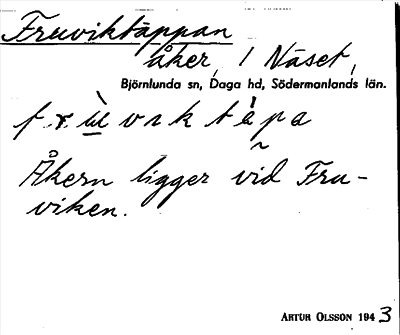 Fruviktäppan
åker, 1 Näset,
Björnlunda sn, Daga hd, Södermanlands län.
Åkern ligger vid Fru-
viken.
ARTUR OLSSON 1943